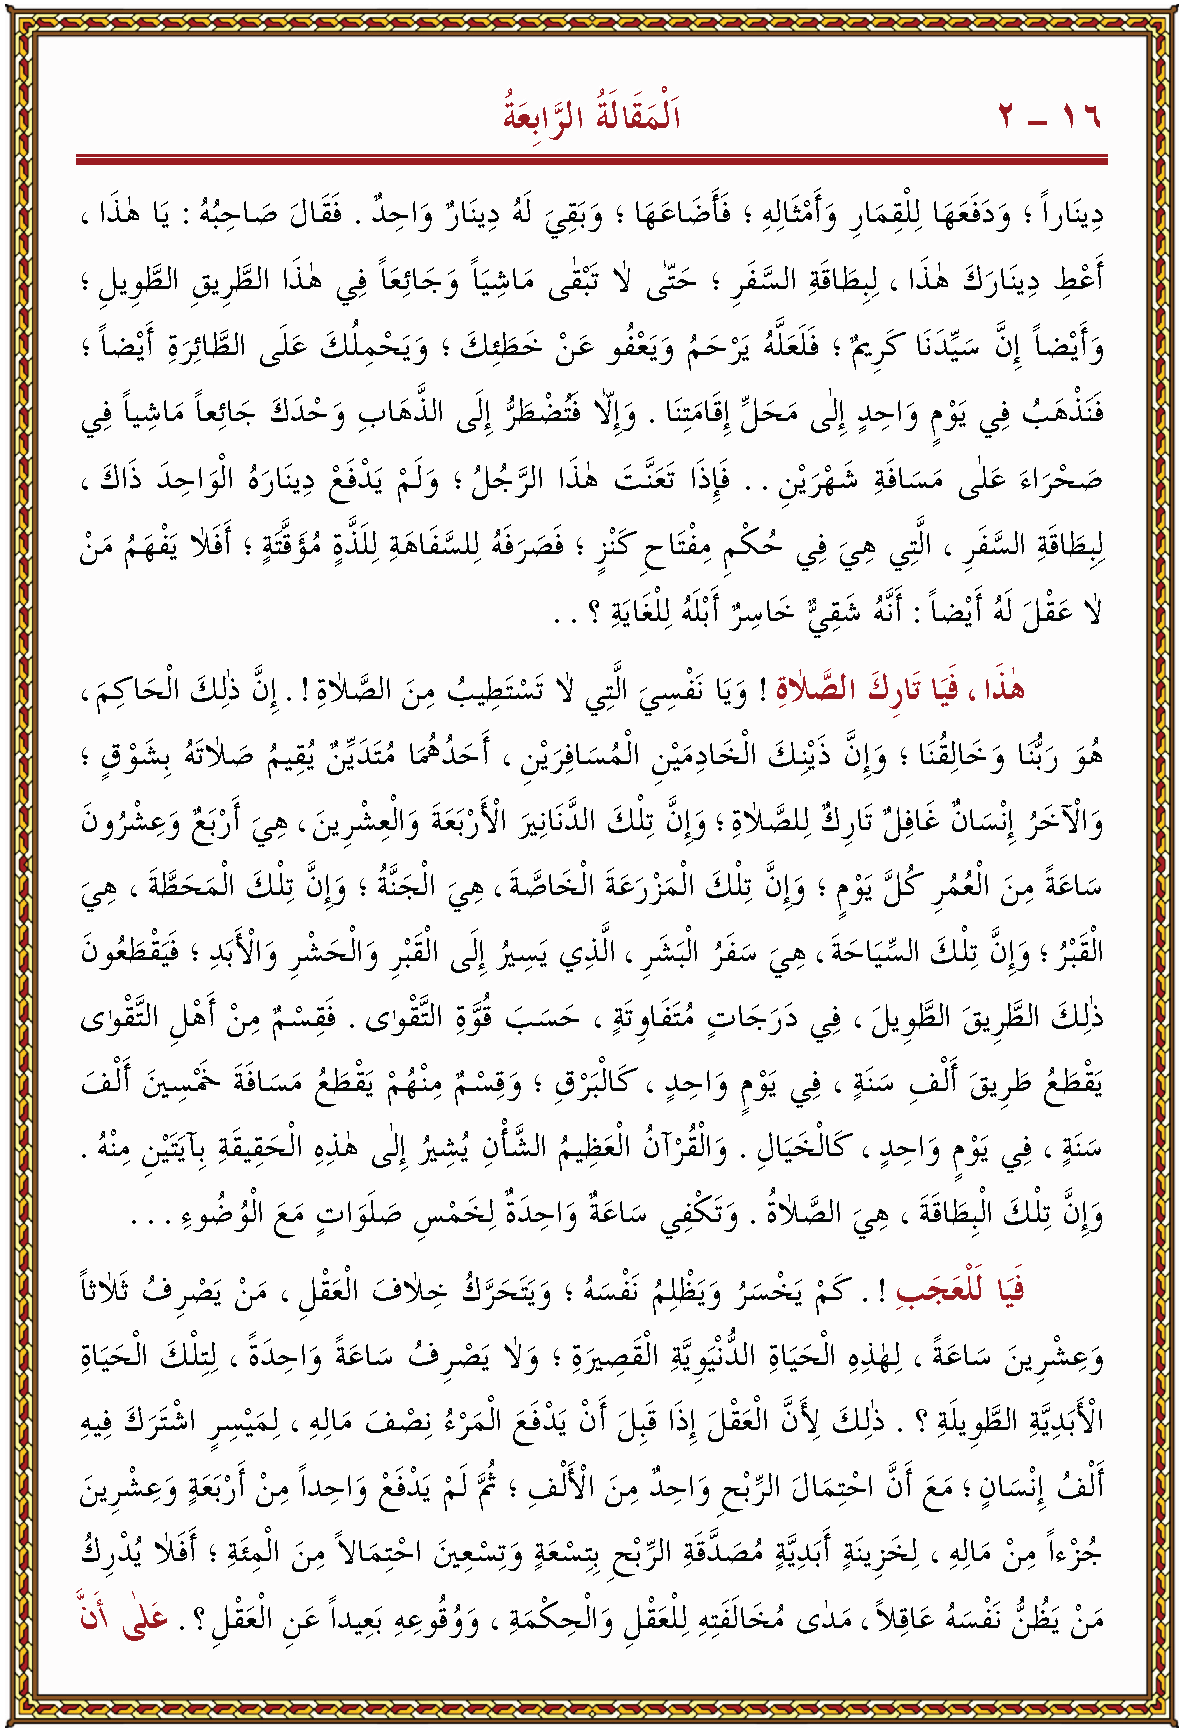 ١٦ – ٢ اَلْمَقَالَةُ الرَّابِعَةُ
دِينَاراً ؛ وَدَفَعَهَا لِلْقِمَارِ وَأَمْثَالِهِ ؛ فَأَضَاعَهَا ؛ وَبَقِيَ لَهُ دِينَارٌ وَاحِدٌ . فَقَالَ صَاحِبُهُ : يَا هٰذَا ،
أَعْطِ دِينَارَكَ هٰذَا ، لِبِطَاقَةِ السَّفَرِ ؛ حَتّٰى لاٰ تَبْقٰى مَاشِيَاً وَجَائِعَاً فِي هٰذَا الطَّرِيقِ الطَّوِيلِ ؛
وَأَيْضاً إِنَّ سَيِّدَنَا كَرِيمٌ ؛ فَلَعَلَّهُ يَرْحَمُ وَيَعْفُو عَنْ خَطَئِكَ ؛ وَيَحْمِلُكَ عَلَى الطَّائِرَةِ أَيْضاً ؛
فَنَذْهَبُ فِي يَوْمٍ وَاحِدٍ إِلٰى مَحَلِّ إِقَامَتِنَا . وَإِلاّٰ فَتُضْطَرُّ إِلَى الذَّهَابِ وَحْدَكَ جَائِعاً مَاشِياً فِي
صَحْرَاءَ عَلٰى مَسَافَةِ شَهْرَيْنِ . . فَإِذَا تَعَنَّتَ هٰذَا الرَّجُلُ ؛ وَلَمْ يَدْفَعْ دِينَارَهُ الْوَاحِدَ ذَاكَ ،
لِبِطَاقَةِ السَّفَرِ ، الَّتِي هِيَ فِي حُكْمِ مِفْتَاحِ كَنْزٍ ؛ فَصَرَفَهُ لِلسَّفَاهَةِ لِلَذَّةٍ مُؤَقَّتَةٍ ؛ أَفَلاٰ يَفْهَمُ مَنْ
لاٰ عَقْلَ لَهُ أَيْضاً : أَنَّهُ شَقِيٌّ خَاسِرٌ أَبْلَهُ لِلْغَايَةِ ؟ . .
هٰذَا ، فَيَا تَارِكَ الصَّلاٰةِ ! وَيَا نَفْسِيَ الَّتِي لاٰ تَسْتَطِيبُ مِنَ الصَّلاٰةِ ! . إِنَّ ذٰلِكَ الْحَاكِمَ ،
هُوَ رَبُّنَا وَخَالِقُنَا ؛ وَإِنَّ ذَيْنِكَ الْخَادِمَيْنِ الْمُسَافِرَيْنِ ، أَحَدُهُمَا مُتَدَيِّنٌ يُقِيمُ صَلاٰتَهُ بِشَوْقٍ ؛
وَالْآخَرُ إِنْسَانٌ غَافِلٌ تَارِكٌ لِلصَّلاٰةِ ؛ وَإِنَّ تِلْكَ الدَّنَانِيرَ الْأَرْبَعَةَ وَالْعِشْرِينَ ، هِيَ أَرْبَعٌ وَعِشْرُونَ
سَاعَةً مِنَ الْعُمُرِ كُلَّ يَوْمٍ ؛ وَإِنَّ تِلْكَ الْمَزْرَعَةَ الْخَاصَّةَ ، هِيَ الْجَنَّةُ ؛ وَإِنَّ تِلْكَ الْمَحَطَّةَ ، هِيَ
الْقَبْرُ ؛ وَإِنَّ تِلْكَ السِّيَاحَةَ ، هِيَ سَفَرُ الْبَشَرِ ، الَّذِي يَسِيرُ إِلَى الْقَبْرِ وَالْحَشْرِ وَالْأَبَدِ ؛ فَيَقْطَعُونَ
ذٰلِكَ الطَّرِيقَ الطَّوِيلَ ، فِي دَرَجَاتٍ مُتَفَاوِتَةٍ ، حَسَبَ قُوَّةِ التَّقْوٰى . فَقِسْمٌ مِنْ أَهْلِ التَّقْوٰى
يَقْطَعُ طَرِيقَ أَلْفِ سَنَةٍ ، فِي يَوْمٍ وَاحِدٍ ، كَالْبَرْقِ ؛ وَقِسْمٌ مِنْهُمْ يَقْطَعُ مَسَافَةَ خَمْسِينَ أَلْفَ
سَنَةٍ ، فِي يَوْمٍ وَاحِدٍ ، كَالْخَيَالِ . وَالْقُرْآنُ الْعَظِيمُ الشَّأْنِ يُشِيرُ إِلٰى هٰذِهِ الْحَقِيقَةِ بِآيَتَيْنِ مِنْهُ .
وَإِنَّ تِلْكَ الْبِطَاقَةَ ، هِيَ الصَّلاٰةُ . وَتَكْفِي سَاعَةٌ وَاحِدَةٌ لِخَمْسِ صَلَوَاتٍ مَعَ الْوُضُوءِ . . .
فَيَا لَلْعَجَبِ ! . كَمْ يَخْسَرُ وَيَظْلِمُ نَفْسَهُ ؛ وَيَتَحَرَّكُ خِلاٰفَ الْعَقْلِ ، مَنْ يَصْرِفُ ثَلاٰثاً
وَعِشْرِينَ سَاعَةً ، لِهٰذِهِ الْحَيَاةِ الدُّنْيَوِيَّةِ الْقَصِيرَةِ ؛ وَلاٰ يَصْرِفُ سَاعَةً وَاحِدَةً ، لِتِلْكَ الْحَيَاةِ
الْأَبَدِيَّةِ الطَّوِيلَةِ ؟ . ذٰلِكَ لِأَنَّ الْعَقْلَ إِذَا قَبِلَ أَنْ يَدْفَعَ الْمَرْءُ نِصْفَ مَالِهِ ، لِمَيْسِرٍ اشْتَرَكَ فِيهِ
أَلْفُ إِنْسَانٍ ؛ مَعَ أَنَّ احْتِمَالَ الرِّبْحِ وَاحِدٌ مِنَ الْأَلْفِ ؛ ثُمَّ لَمْ يَدْفَعْ وَاحِداً مِنْ أَرْبَعَةٍ وَعِشْرِينَ
جُزْءاً مِنْ مَالِهِ ، لِخَزِينَةٍ أَبَدِيَّةٍ مُصَدَّقَةِ الرِّبْحِ بِتِسْعَةٍ وَتِسْعِينَ احْتِمَالاً مِنَ الْمِئَةِ ؛ أَفَلاٰ يُدْرِكُ
مَنْ يَظُنُّ نَفْسَهُ عَاقِلاً ، مَدٰى مُخَالَفَتِهِ لِلْعَقْلِ وَالْحِكْمَةِ ، وَوُقُوعِهِ بَعِيداً عَنِ الْعَقْلِ ؟ . عَلٰى أَنَّ